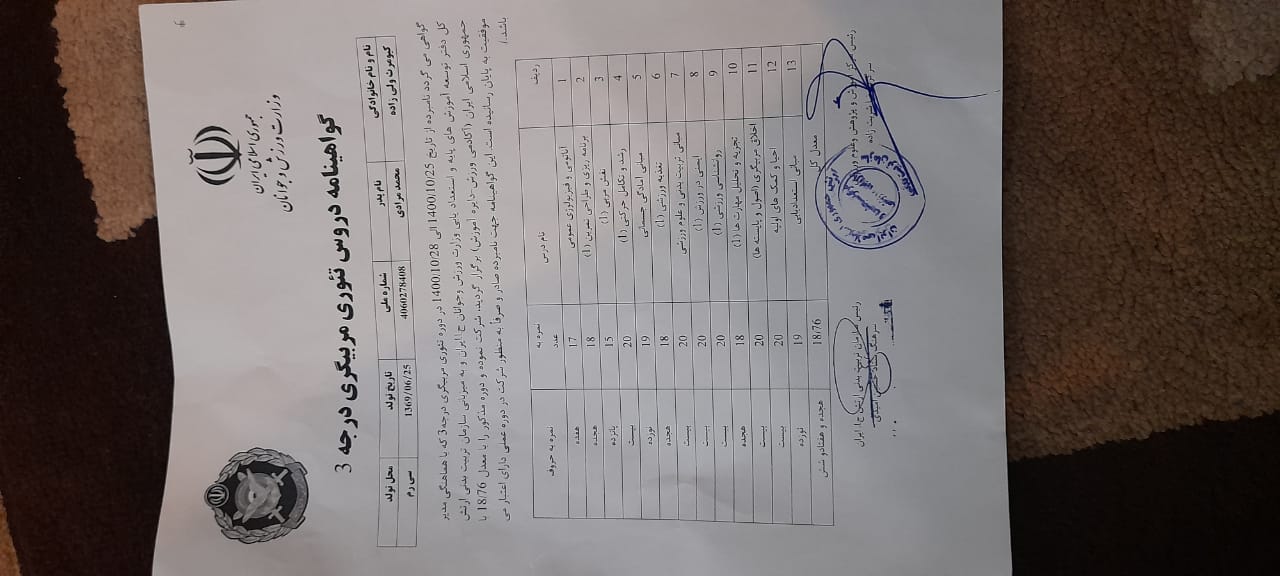 6
جمهوری اسلامی ایران
وزارت ورزش و جوانان
گواهینامه دروس تئوری مربیگری درجه 3
نام و نام خانوادگی نام پدر شماره ملی تاریخ تولد محل تولد
کیومرث ولی زاده محمد مرادی 4060278408 1369/06/25 سی رم
گواهی می گردد نامبرده از تاریخ 1400/10/25 الی 1400/10/28 در دوره تئوری مربیگری درجه 3 که با هماهنگی مدیر
کل دفتر توسعه آموزش های پایه و استعداد یابی وزارت ورزش وجوانان ج.ا.ایران و به میزبانی سازمان تربیت بدنی ارتش
جمهوری اسلامی ایران (آکادمی ورزش-دایره آموزش) برگزار گردید، شرکت نموده و دوره مذکور را با معدل 18/76 با
موفقیت به پایان رسانیده است. این گواهینامه جهت نامبرده صادر و صرفاً به منظور شرکت در دوره عملی دارای اعتبار می
باشد./
ردیف نام درس نمره به عدد نمره به حروف
1 آناتومی و فیزیولوژی عمومی 17 هفده
2 برنامه ریزی و طراحی تمرین (1) 18 هجده
3 نقش مربی (1) 15 پانزده
4 رشد و تکامل حرکتی (1) 20 بیست
5 مبانی آمادگی جسمانی 19 نوزده
6 تغذیه ورزشی (1) 18 هجده
7 مبانی تربیت بدنی و علوم ورزشی 20 بیست
8 ایمنی در ورزش (1) 20 بیست
9 روانشناسی ورزشی (1) 20 بیست
10 تجزیه و تحلیل مهارت ها (1) 18 هجده
11 اخلاق مربیگری (اصول و بایسته ها) 20 بیست
12 احیا و کمک های اولیه 20 بیست
13 مبانی استعدادیابی 19 نوزده
معدل کل 18/76 هجده و هفتادو شش
رئیس مرکز آموزش و پژوهش وعلوم
رئیس سازمان تربیت بدنی ارتش ج.ا. ایران